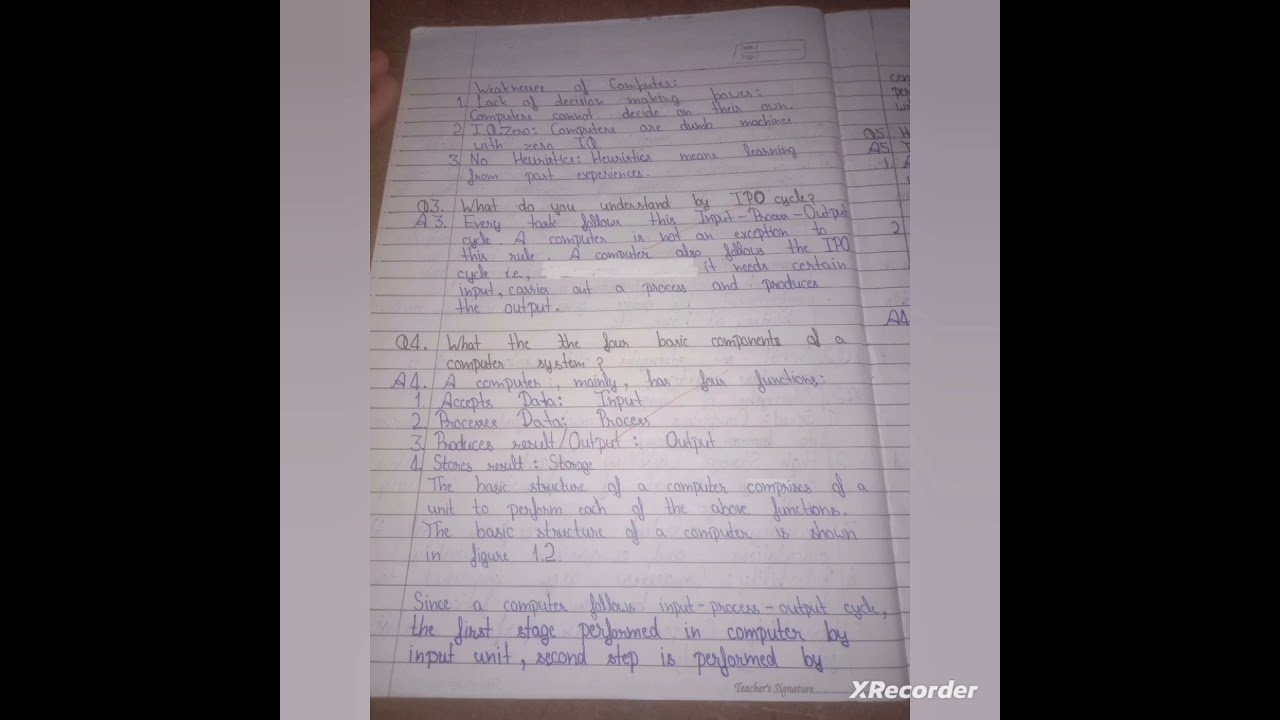 Weakness of Computer:
1. Lack of decision making power:
Computers cannot decide on their own.
2 I.Q.Zero: Computers are dumb machines
with zero IQ
3 No Heuristics: Heuristics means learning
from past experiences.
Q3. What do you understand by IPO cycle?
A3. Every task follows this Input-Process-Output
cycle. A computer is not an exception to
this rule. A computer also follows the IPO
cycle i.e., it needs certain
input, carries out a process and produces
the output.
Q4. What the the four basic components of a
computer system?
A4. A computer, mainly, has four functions:
1. Accepts Data: Input
2. Processes Data: Process
3. Produces result/Output: Output
4. Stores result: Storage
The basic structure of a computer comprises of a
unit to perform each of the above functions.
The basic structure of a computer is shown
in figure 1.2
Since a computer follows input-process-output cycle,
the first stage performed in computer by
input unit, second step is performed by
Teacher's Signature
Q5
A5
1
2
A4
XRecorder